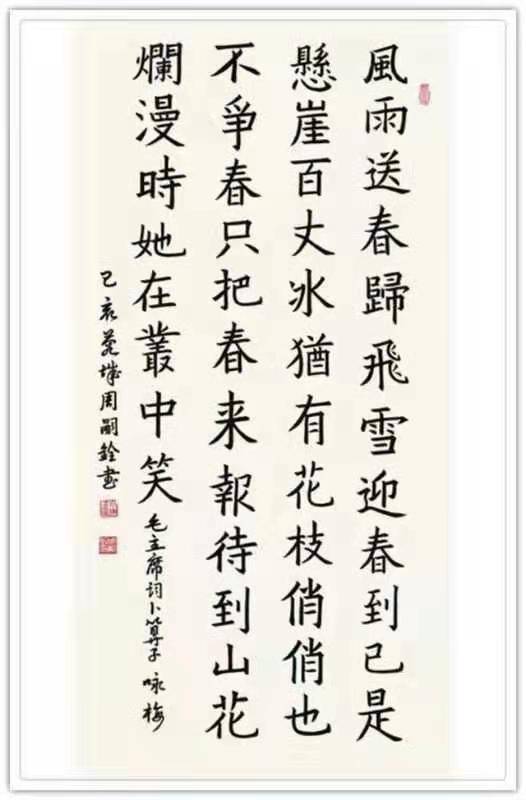 風雨送春歸飛雪迎春到已是
懸崖百丈冰猶有花枝俏俏也
不爭春只把春来報待到山花
爛漫時她在叢中笑
毛主席词卜算子 咏梅
己亥城周嗣銓書